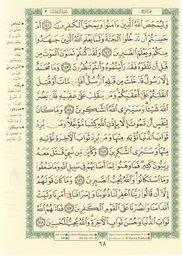 وَلِيُمَحِّصَ اللَّهُ الَّذِينَ ءَامَنُوا وَيَمْحَقَ الْكَٰفِرِينَ ١٤١ أَمْ
حَسِبْتُمْ أَن تَدْخُلُوا الْجَنَّةَ وَلَمَّا يَعْلَمِ اللَّهُ الَّذِينَ جَٰهَدُوا
مِنكُمْ وَيَعْلَمَ الصَّٰبِرِينَ ١٤٢ وَلَقَدْ كُنتُمْ تَمَنَّوْنَ الْمَوْتَ مِن
قَبْلِ أَن تَلْقَوْهُ فَقَدْ رَأَيْتُمُوهُ وَأَنتُمْ تَنظُرُونَ ١٤٣ وَمَا مُحَمَّدٌ
إِلَّا رَسُولٌ قَدْ خَلَتْ مِن قَبْلِهِ الرُّسُلُ أَفَإِي۟ن مَّاتَ أَوْ قُتِلَ
انقَلَبْتُمْ عَلَىٰ أَعْقَٰبِكُمْ وَمَن يَنقَلِبْ عَلَىٰ عَقِبَيْهِ فَلَن يَضُرَّ
اللَّهَ شَيْـًٔا وَسَيَجْزِي اللَّهُ الشَّٰكِرِينَ ١٤٤ وَمَا كَانَ
لِنَفْسٍ أَن تَمُوتَ إِلَّا بِإِذْنِ اللَّهِ كِتَٰبًا مُّؤَجَّلًا وَمَن يُرِدْ
ثَوَابَ الدُّنْيَا نُؤْتِهِ مِنْهَا وَمَن يُرِدْ ثَوَابَ الْءَاخِرَةِ نُؤْتِهِ
مِنْهَا وَسَنَجْزِي الشَّٰكِرِينَ ١٤٥ وَكَأَيِّن مِّن نَّبِيٍّ قَٰتَلَ مَعَهُ
رِبِّيُّونَ كَثِيرٌ فَمَا وَهَنُوا لِمَا أَصَابَهُمْ فِي سَبِيلِ اللَّهِ وَمَا ضَعُفُوا
وَمَا اسْتَكَانُوا وَاللَّهُ يُحِبُّ الصَّٰبِرِينَ ١٤٦ وَمَا كَانَ قَوْلَهُمْ
إِلَّا أَن قَالُوا رَبَّنَا اغْفِرْ لَنَا ذُنُوبَنَا وَإِسْرَافَنَا فِي أَمْرِنَا وَثَبِّتْ
أَقْدَامَنَا وَانصُرْنَا عَلَى الْقَوْمِ الْكَٰفِرِينَ ١٤٧ فَـَٔاتَىٰهُمُ اللَّهُ
ثَوَابَ الدُّنْيَا وَحُسْنَ ثَوَابِ الْءَاخِرَةِ وَاللَّهُ يُحِبُّ الْمُحْسِنِينَ ١٤٨
٦٨